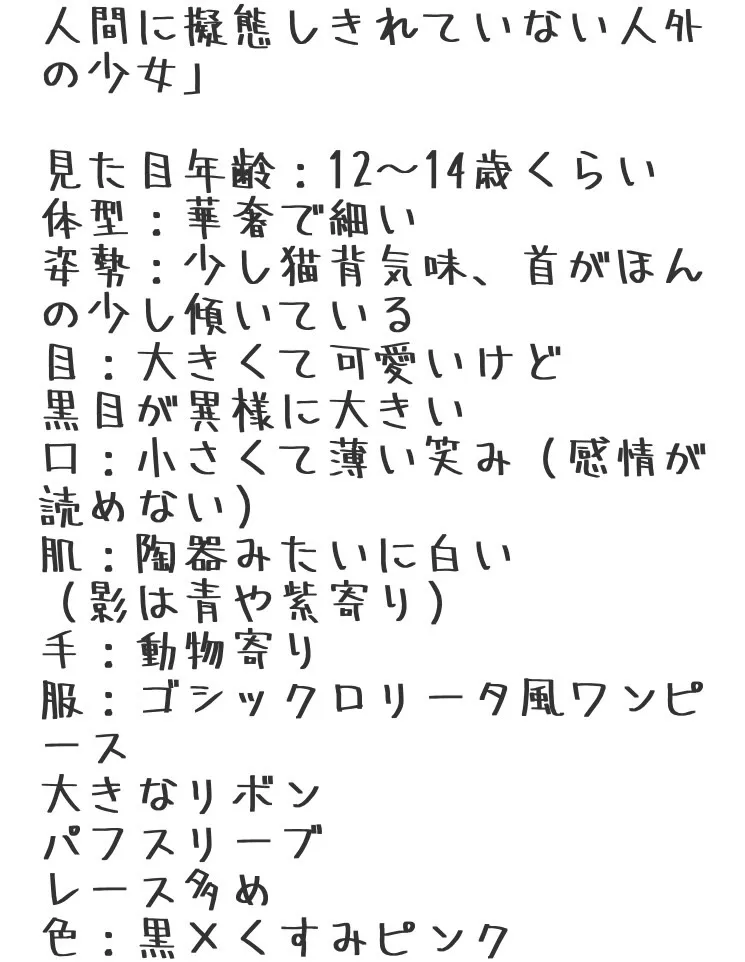 人間に擬態しきれていない人外
の少女」
見た目年齢：12〜14歳くらい
体型：華奢で細い
姿勢：少し猫背気味、首がほん
の少し傾いている
目：大きくて可愛いけど
黒目が異様に大きい
口：小さくて薄い笑み（感情が
読めない）
肌：陶器みたいに白い
（影は青や紫寄り）
手：動物寄り
服：ゴシックロリータ風ワンピ
ース
大きなリボン
パフスリーブ
レース多め
色：黒×くすみピンク